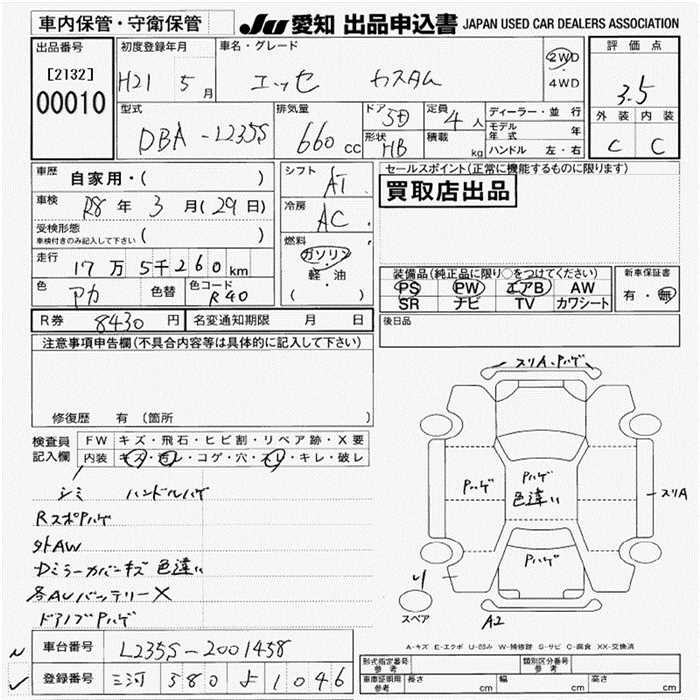 車内保管・守衛保管
JU 愛知 出品申込書 JAPAN USED CAR DEALERS ASSOCIATION
出品番号
[2132]
00010
初度登録年月
H21 5月
車名・グレード
エッセ カスタム
2WD
4WD
評価点
3.5
外装 内装
C C
型式
DBA-L235S
排気量
660 cc
ドア
5D
形状
HB
定員
4人
積載
kg
ディーラー・並行
モデル年式 年
ハンドル 左・右
車歴 自家用・( )
車検 R8年 3月(29日)
受検形態
車検付きのみ記入して下さい ( )
走行 17万5千260km
色 アカ 色替 色コード R40
シフト
AT
冷房
AC
燃料
ガソリン
軽・油
( )
セールスポイント(正常に機能するものに限ります)
買取店出品
装備品(純品に限り○をつけてください)
PS PW エアB AW
SR ナビ TV カワシート
新車保証書
有・無
R券 8430円 名変通知期限 月 日
後日品
注意事項申告欄(不具合内容等は具体的に記入して下さい)
修復歴 有(箇所 )
検査員記入欄
FW キズ・飛石・ヒビ割・リペア跡・X要
内装 キズ・汚レ・コゲ・穴・スレ・キレ・破レ
シミ ハンドルハゲ
RスポPハゲ
外AW
Dミラーカバーキズ 色違い
各AUバッテリーX
ドアノブPハゲ
スリA.Pハゲ
Pハゲ
Pハゲ
色違い
スリA
Pハゲ
スペア
A2
A-キズ E-エクボ U-凹み W-補修跡 S-サビ C-腐食 XX-交換済
車台番号 L235S-2001458
登録番号 三河 580 よ 1046
形式指定番号 参考
類別区分番号 参考
車庫証明用 参考 長さ cm 幅 cm 高さ cm